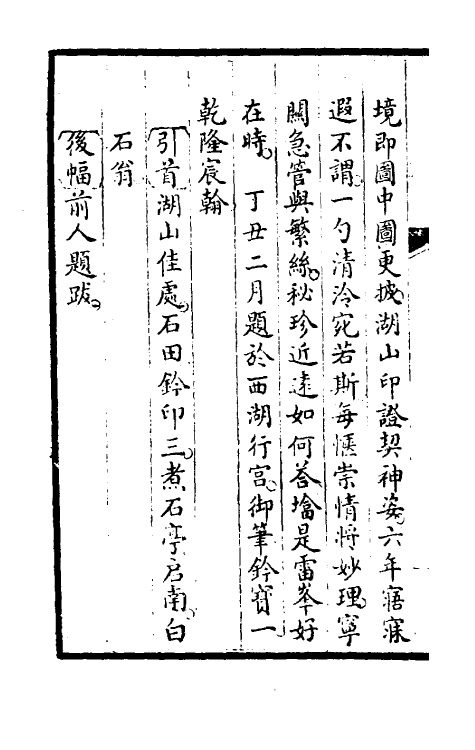 境即圖中圖更披湖山印證契神姿六年寤寐
遐不謂一勺清泠宛若斯每愜崇情將妙理寧
關急管與繁絲秘珍近遠如何荅墖是雷峯好
在時　丁丑二月題於西湖行宫御筆鈐寶一
乾隆宸翰
引首湖山佳處石田鈐印三煮石亭启南白
石翁
後幅前人題跋